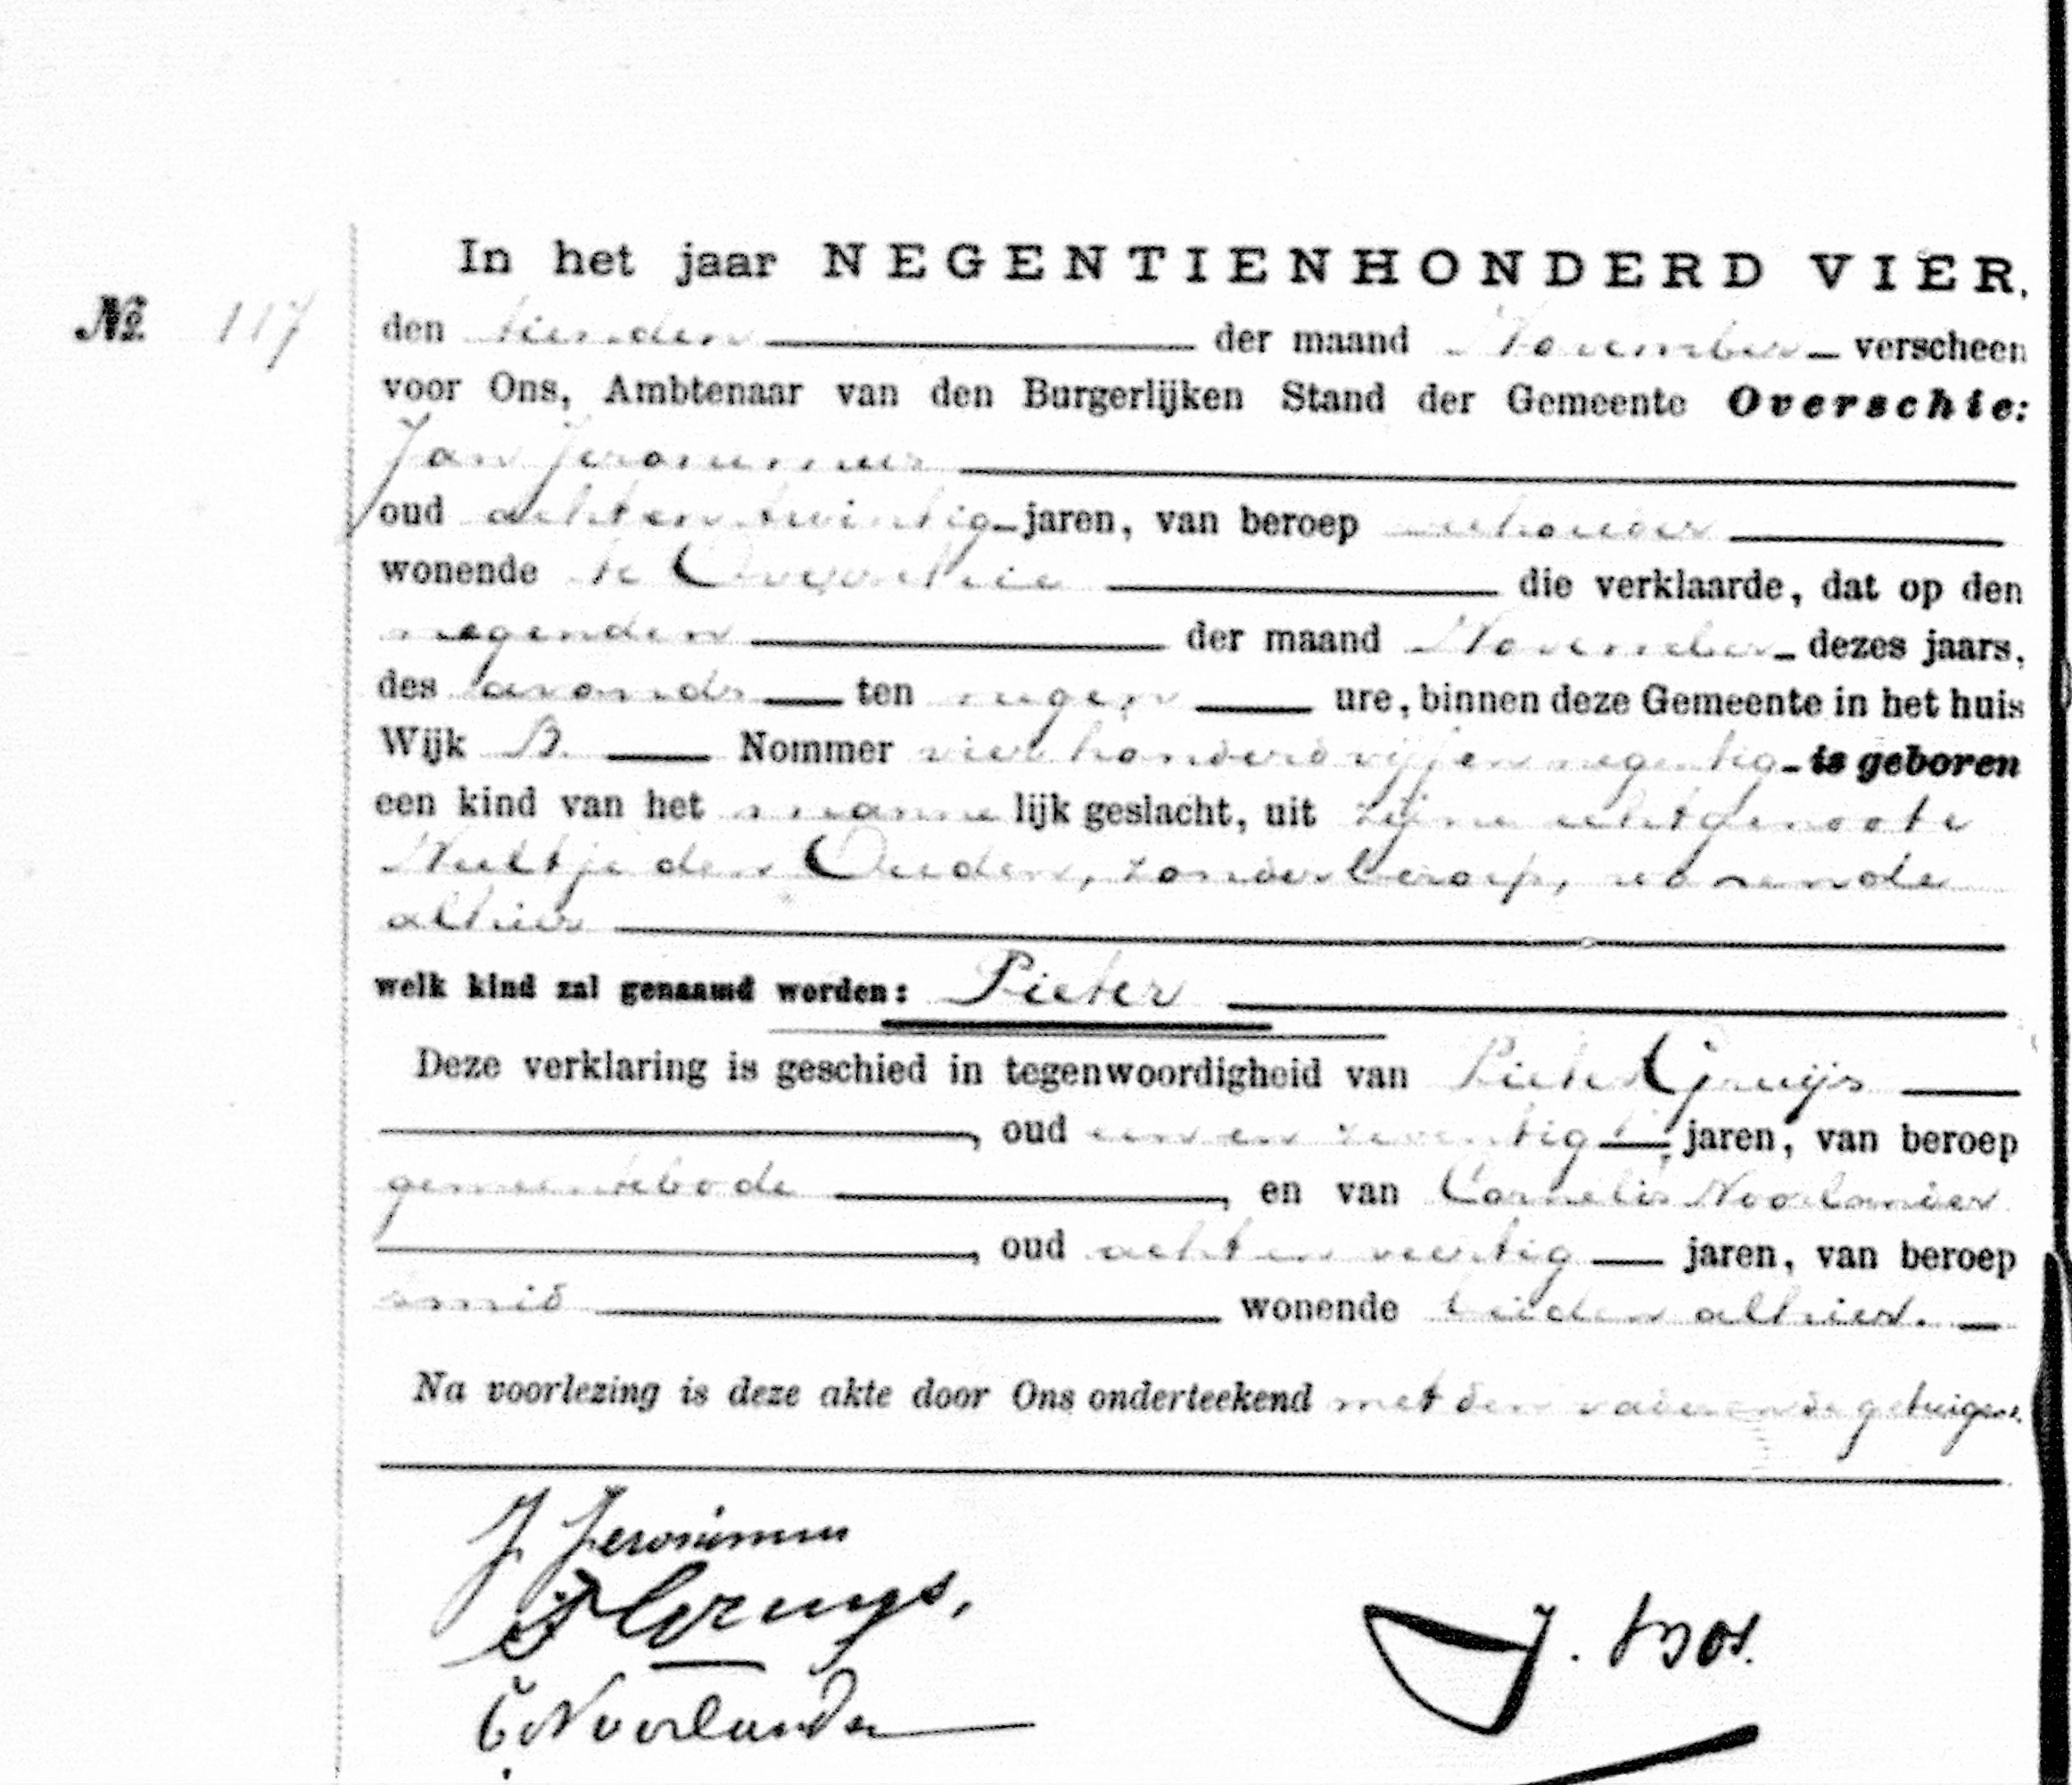 In het jaar NEGENTIENHONDERD VIER,
№ 117 den tienden der maand November verscheen
voor Ons, Ambtenaar van den Burgerlijken Stand der Gemeente Overschie:
Jan Jeronimus
oud achtentwintig jaren, van beroep
wonende te Overschie die verklaarde, dat op den
negenden der maand November dezes jaars,
des avonds ten negen ure, binnen deze Gemeente in het huis
Wijk Nommer vierhonderd vijf en negentig is geboren
een kind van het mannelijk geslacht, uit zijne echtgenoote
Neeltje den Ouden, zonder beroep, wonende
alhier
welk kind zal genaamd worden: Pieter
Deze verklaring is geschied in tegenwoordigheid van Pieter Gruijs
, oud een en zeventig jaren, van beroep
gemeentebode, en van Cornelis Noorlander
, oud acht en veertig jaren, van beroep
smid wonende beiden alhier.
Na voorlezing is deze akte door Ons onderteekend met den vader en de getuigen.
J Jeronimus
P Gruijs,
J. Bos.
C Noorlander